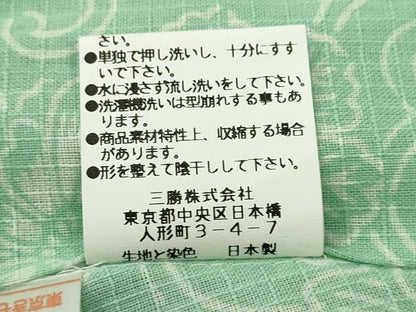 さい。
●単独で押し洗いし、十分にすす
いで下さい。
●水に浸さず流し洗いをして下さい。
●洗濯機洗いは型崩れする事もあ
ります。
●商品素材特性上、収縮する場合
があります。
●形を整えて陰干しして下さい。
三勝株式会社
東京都中央区日本橋
人形町3-4-7
生地と染色 日本製
東京きせ